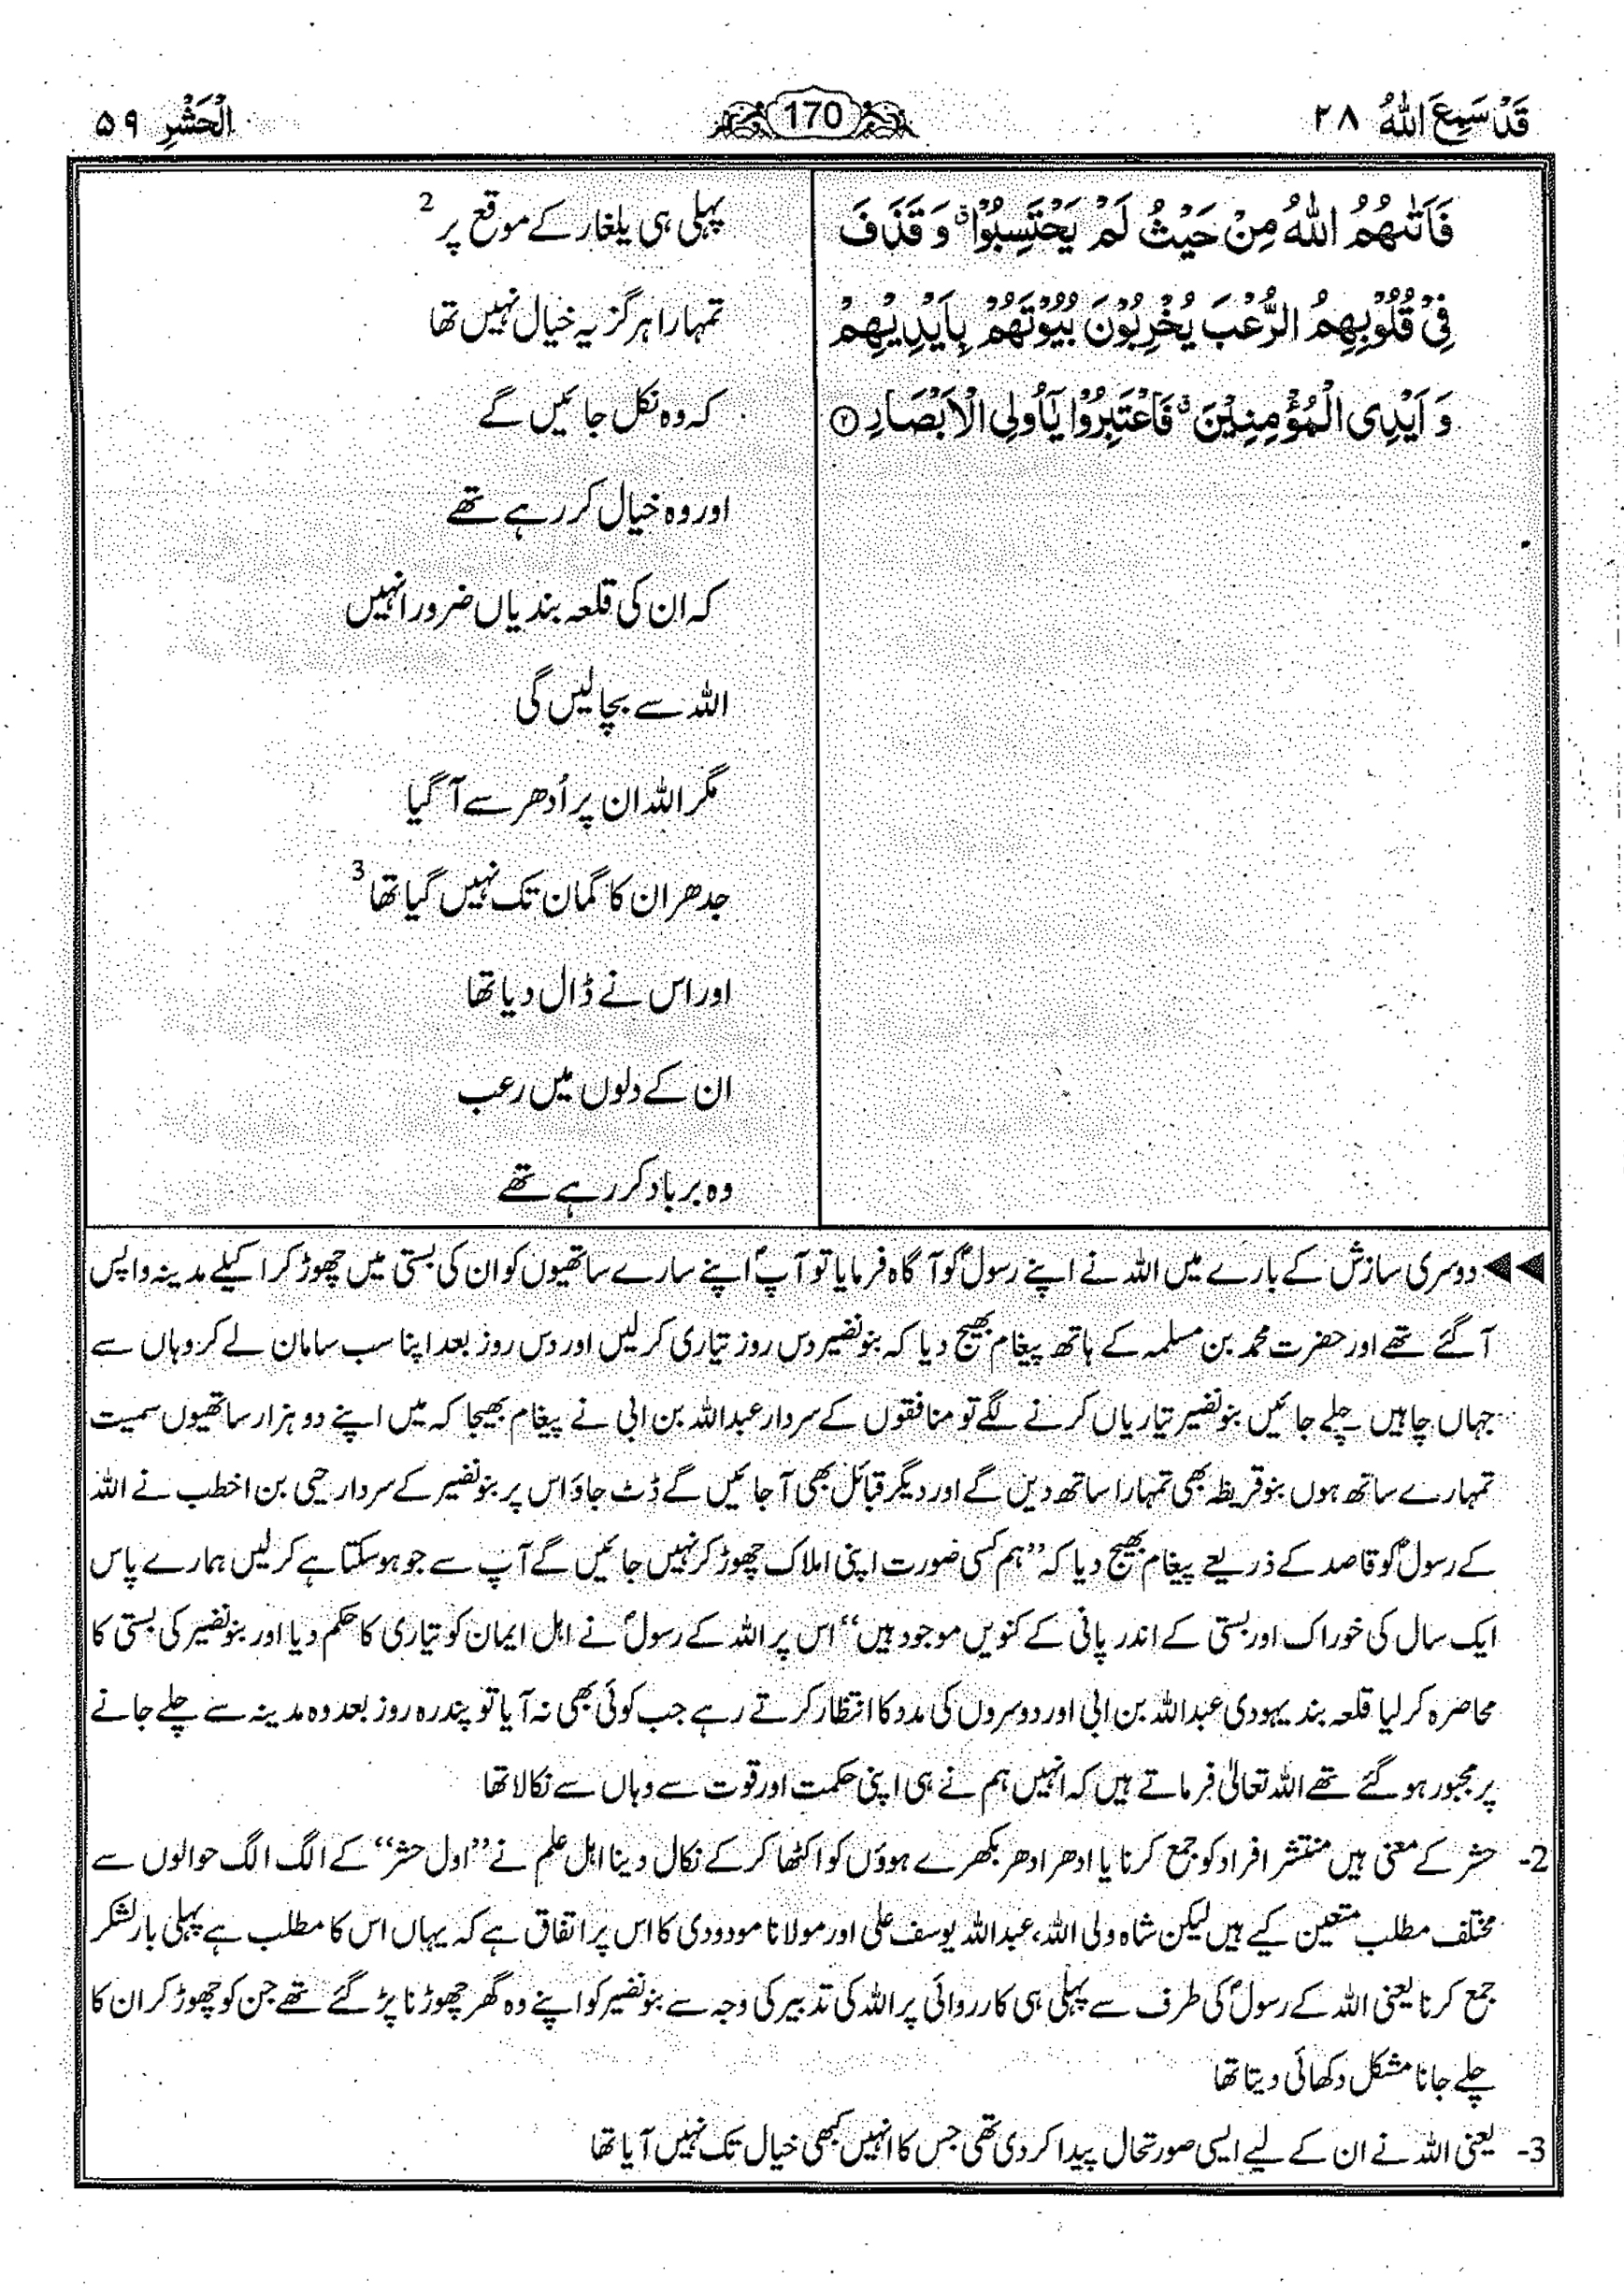 قَدْ سَمِعَ اللّٰهُ ۲۸
170
الْحَشْرِ ۵۹
فَاَتٰىهُمُ اللّٰهُ مِنْ حَيْثُ لَمْ يَحْتَسِبُوْا ۗ وَ قَذَفَ
فِیْ قُلُوْبِهِمُ الرُّعْبَ يُخْرِبُوْنَ بُيُوْتَهُمْ بِاَيْدِيْهِمْ
وَ اَيْدِی الْمُؤْمِنِيْنَ ۗ فَاعْتَبِرُوْا يٰۤاُولِی الْاَبْصَارِ ﴿۲﴾
پہلی ہی یلغار کے موقع پر 2
تمہارا ہرگز یہ خیال نہیں تھا
کہ وہ نکل جائیں گے
اور وہ خیال کر رہے تھے
کہ ان کی قلعہ بندیاں ضرور انہیں
اللہ سے بچا لیں گی
مگر اللہ ان پر اُدھر سے آ گیا
جدھر ان کا گمان تک نہیں گیا تھا 3
اور اس نے ڈال دیا تھا
ان کے دلوں میں رعب
وہ برباد کر رہے تھے
◀◀ دوسری سازش کے بارے میں اللہ نے اپنے رسولؐ کو آگاہ فرمایا تو آپؐ اپنے سارے ساتھیوں کو ان کی بستی میں چھوڑ کر اکیلے مدینہ واپس
آ گئے تھے اور حضرت محمد بن مسلمہ کے ہاتھ پیغام بھیج دیا کہ بنو نضیر دس روز تیاری کر لیں اور دس روز بعد اپنا سب سامان لے کر وہاں سے
جہاں چاہیں چلے جائیں بنو نضیر تیاریاں کرنے لگے تو منافقوں کے سردار عبداللہ بن ابی نے پیغام بھیجا کہ میں اپنے دو ہزار ساتھیوں سمیت
تمہارے ساتھ ہوں بنو قریظہ بھی تمہارا ساتھ دیں گے اور دیگر قبائل بھی آ جائیں گے ڈٹ جاؤ اس پر بنو نضیر کے سردار حیی بن اخطب نے اللہ
کے رسولؐ کو قاصد کے ذریعے پیغام بھیج دیا کہ ’’ہم کسی صورت اپنی املاک چھوڑ کر نہیں جائیں گے آپ سے جو ہو سکتا ہے کر لیں ہمارے پاس
ایک سال کی خوراک اور بستی کے اندر پانی کے کنویں موجود ہیں‘‘ اس پر اللہ کے رسولؐ نے اہل ایمان کو تیاری کا حکم دیا اور بنو نضیر کی بستی کا
محاصرہ کر لیا قلعہ بند یہودی عبداللہ بن ابی اور دوسروں کی مدد کا انتظار کرتے رہے جب کوئی بھی نہ آیا تو پندرہ روز بعد وہ مدینہ سے چلے جانے
پر مجبور ہو گئے تھے اللہ تعالیٰ فرماتے ہیں کہ انہیں ہم نے ہی اپنی حکمت اور قوت سے وہاں سے نکالا تھا
2- حشر کے معنی ہیں منتشر افراد کو جمع کرنا یا ادھر ادھر بکھرے ہوؤں کو اکٹھا کر کے نکال دینا اہل علم نے ’’اول حشر‘‘ کے الگ الگ حوالوں سے
مختلف مطلب متعین کیے ہیں لیکن شاہ ولی اللہ، عبداللہ یوسف علی اور مولانا مودودی کا اس پر اتفاق ہے کہ یہاں اس کا مطلب ہے پہلی بار لشکر
جمع کرنا یعنی اللہ کے رسولؐ کی طرف سے پہلی ہی کارروائی پر اللہ کی تدبیر کی وجہ سے بنو نضیر کو اپنے وہ گھر چھوڑنا پڑ گئے تھے جن کو چھوڑ کر ان کا
چلے جانا مشکل دکھائی دیتا تھا
3- یعنی اللہ نے ان کے لیے ایسی صورتحال پیدا کر دی تھی جس کا انہیں کبھی خیال تک نہیں آیا تھا